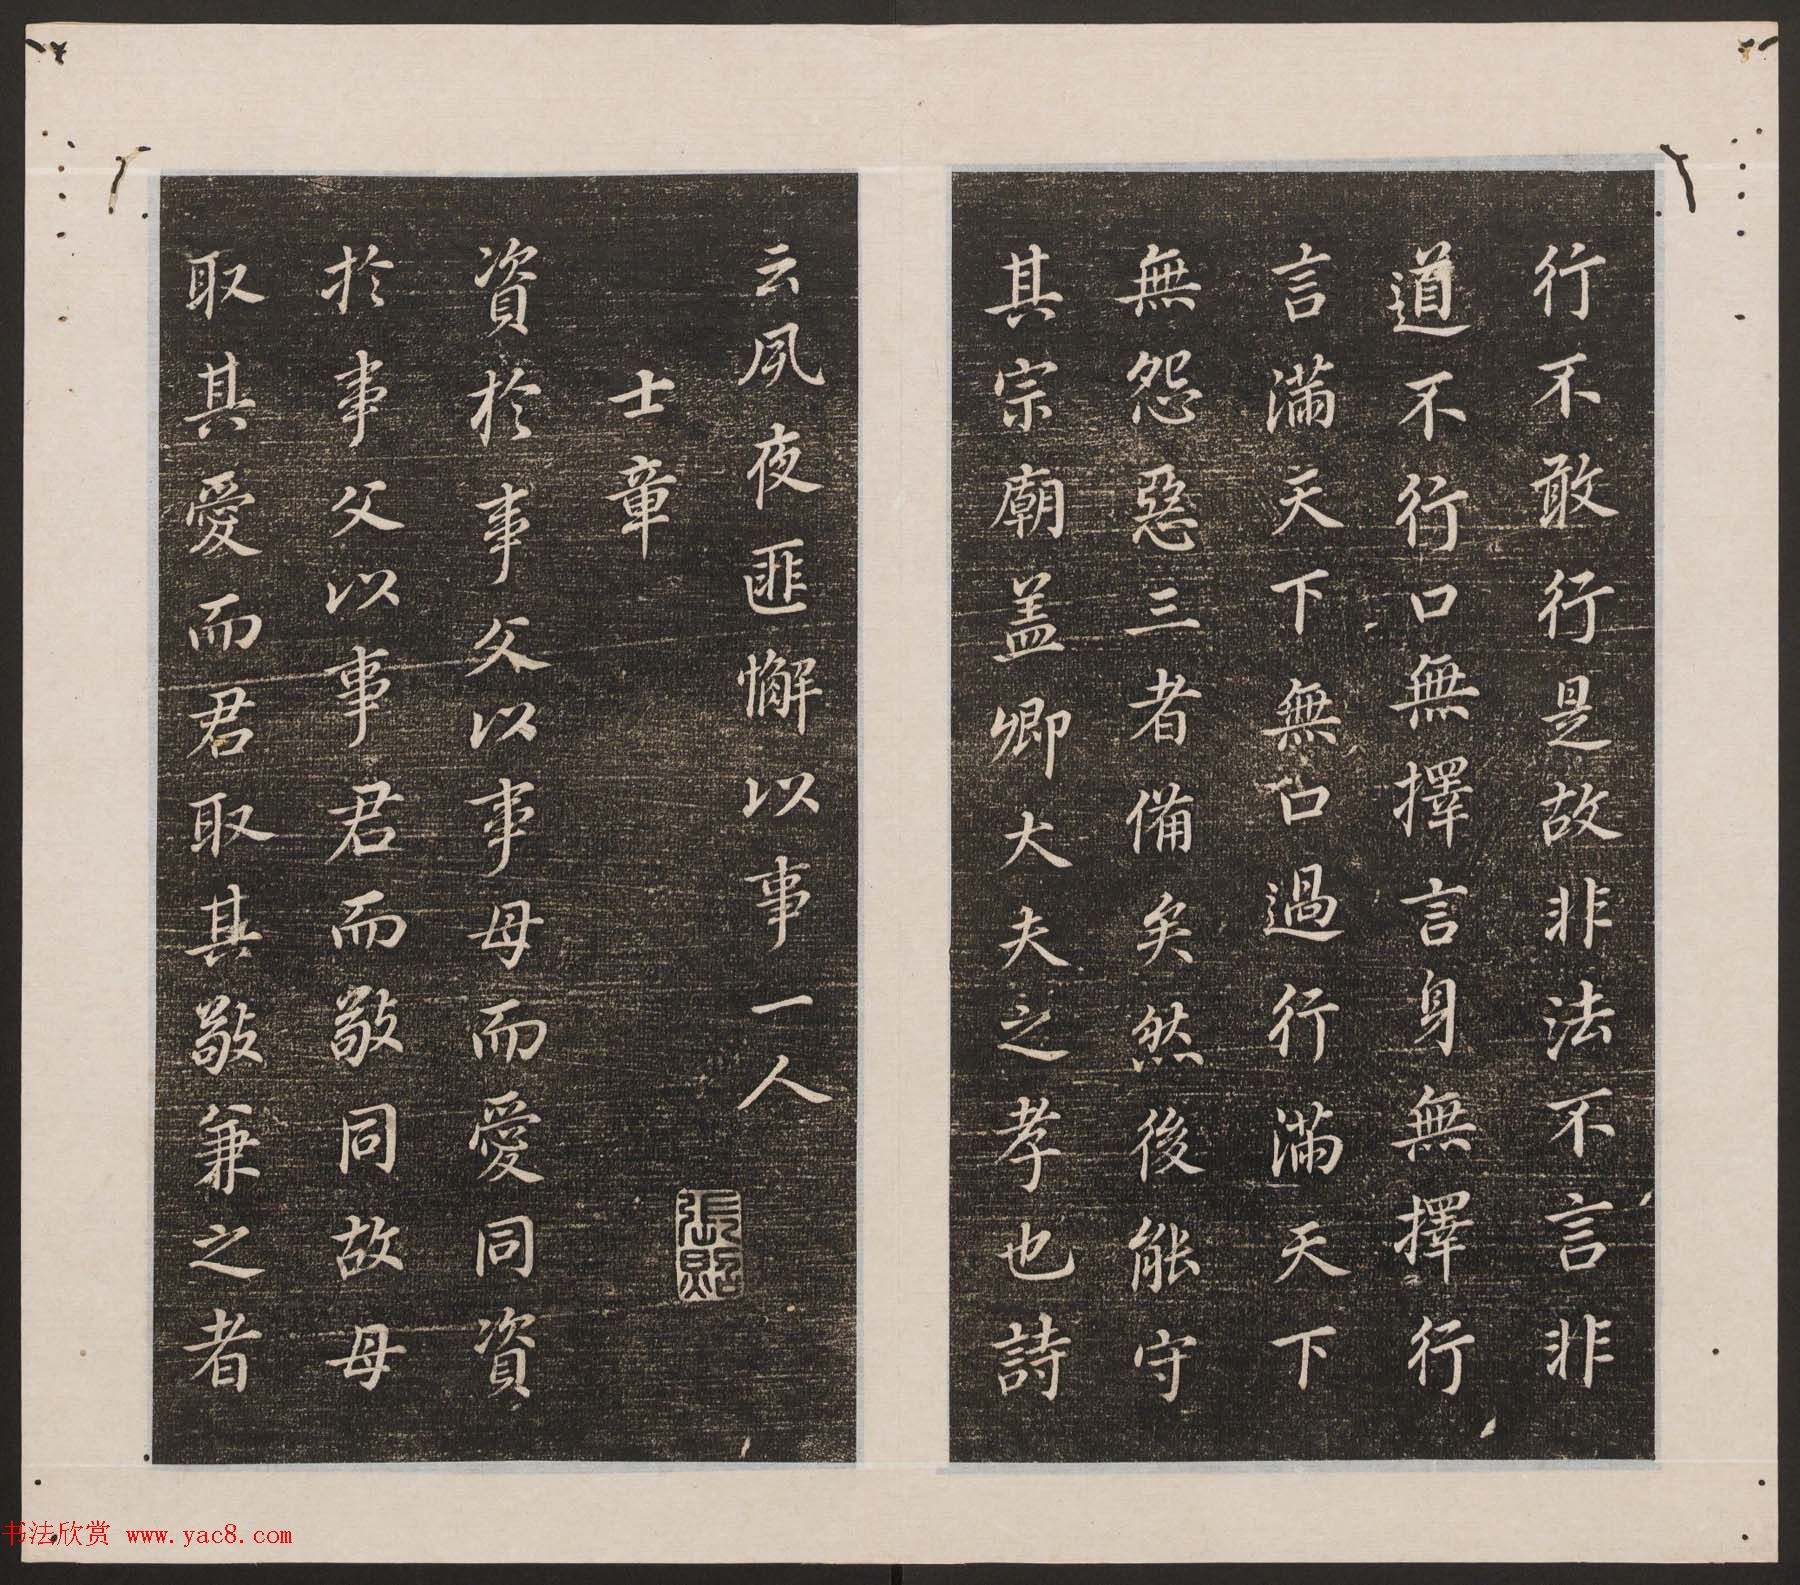 行不敢行是故非法不言非
道不行口無擇言身無擇行
言滿天下無口過行滿天下
無怨惡三者備矣然後能守
其宗廟盖卿大夫之孝也詩
云夙夜匪懈以事一人
士章
資於事父以事母而愛同資
於事父以事君而敬同故母
取其愛而君取其敬兼之者
張照
书法欣赏 www.yac8.com